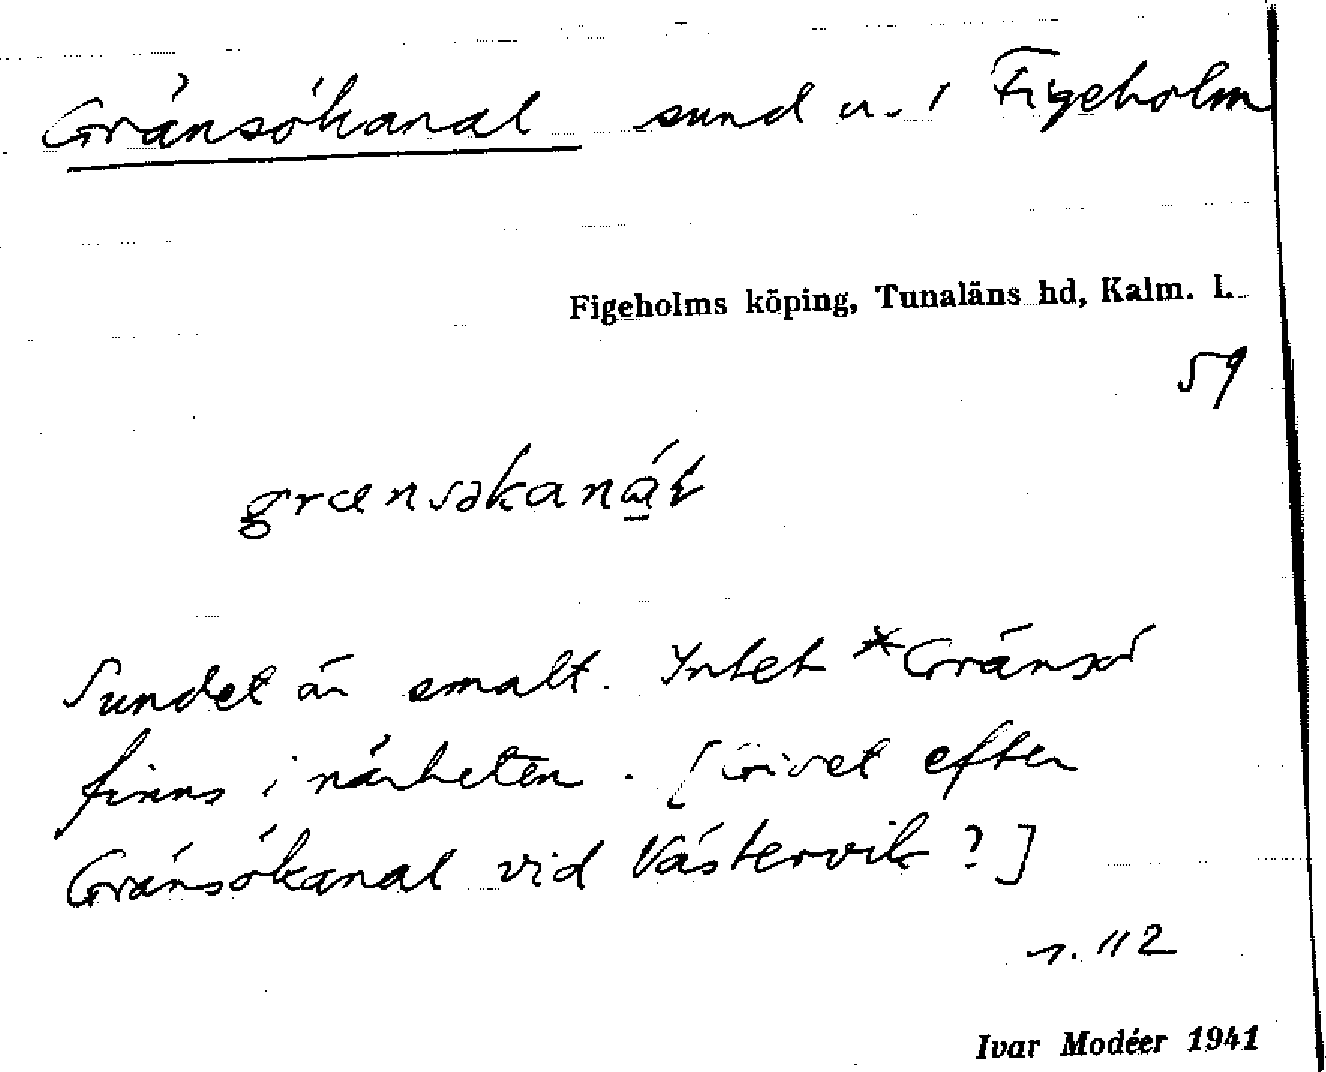 Gränsökanal sund u. i Figeholm
Figeholms köping, Tunaläns hd, Kalm. l.
59
grænsəkaná̱l
Sundet är smalt. Intet *Gränsö
finns i närheten. [Givet efter
Gränsökanal vid Västervik?]
n. 112
Ivar Modéer 1941